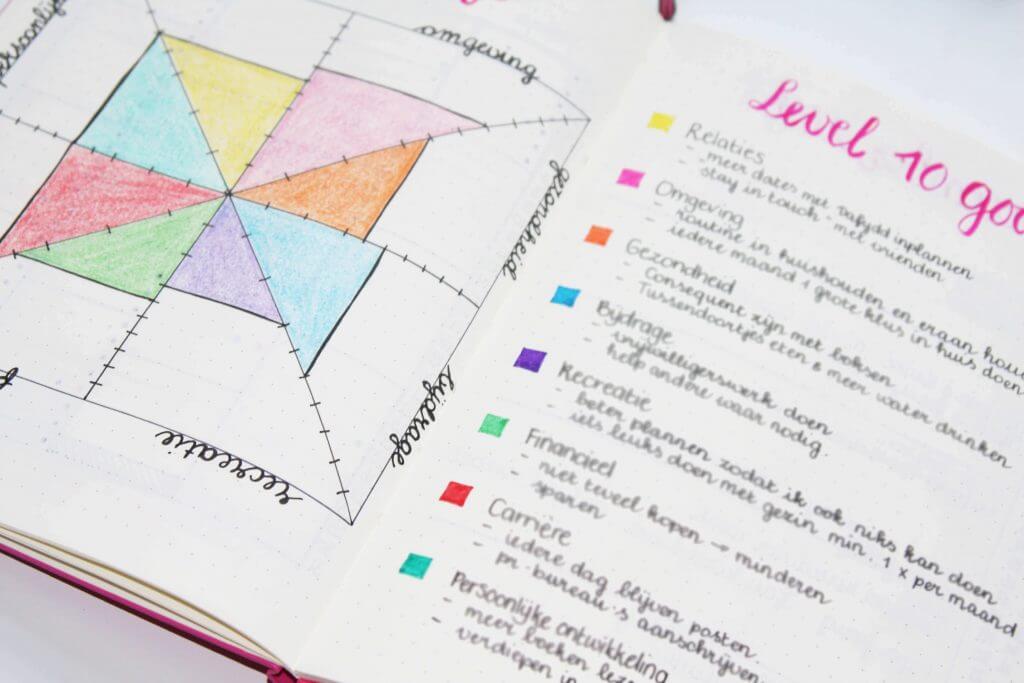 persoonlijk
omgeving
gezondheid
bijdrage
recreatie
Level 10 goa
Relaties
- meer dates met Dafydd inplannen
- stay in touch - met vrienden
Omgeving
- routine in huishouden en eraan houd
- iedere maand 1 grote klus in huis doen
Gezondheid
- Consequent zijn met boksen
- Tussendoortjes eten & meer water drinken
Bijdrage
- vrijwilligerswerk doen
- help andere waar nodig.
Recreatie
- beter plannen zodat ik ook niks kan doen
- iets leuks doen met gezin min. 1 x per maand
Financieel
- niet teveel kopen → minderen
- sparen
Carrière
- iedere dag blijven posten.
- pr. bureau's aanschrijven.
Persoonlijke ontwikkeling
- meer boeken leze
- verdiepen in